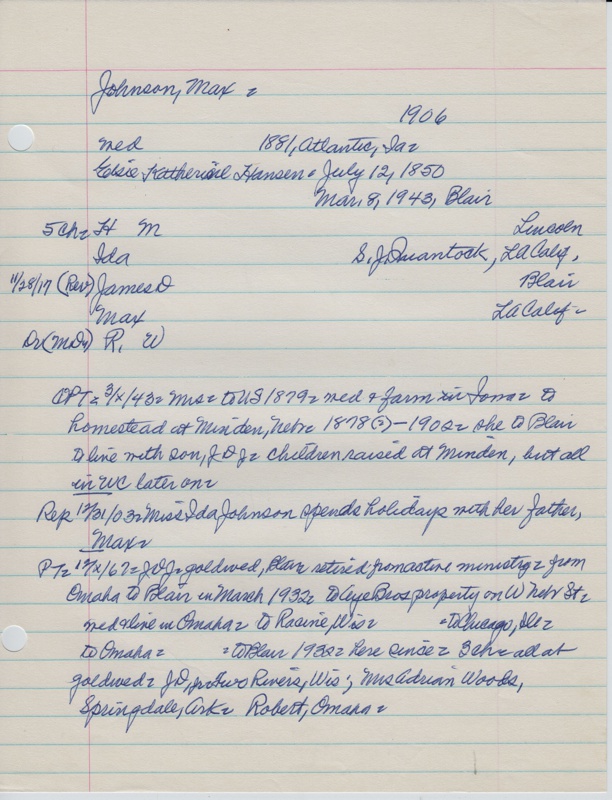 Johnson, Max =
1906
wed 1881, Atlantic, Ia=
Elsie Katherine Hansen = July 12, 1850
Mar. 8, 1943, Blair
5 ch = H M Lincoln
Ida S. J. Quantock, LA Calif,
11/28/17 (Rev) James D Blair
Max LA Calif =
Dr (M.D.) R. W
OPT = 3/x/43 = Mrs = to US 1879 = wed & farm in Iowa = to
homestead at Minden, Nebr = 1878(?) - 1902 = she to Blair
to live with son, J D J = children raised at Minden, but all
in WC later on =
Rep 12/31/03 = Miss Ida Johnson spends holidays with her father,
Max =
PT = 12/x/67 = J D J = goldwed, Blair = retired from active ministry = from
Omaha to Blair in March 1932 = to Lye Bros property on W Nebr St =
wed & live in Omaha = to Racine, Wis = = to Chicago, Ill =
to Omaha = = to Blair 1932 = here since = 3 ch = all at
goldwed = J D, Two Rivers, Wis; Mrs Adrian Woods,
Springdale, Ark = Robert, Omaha =